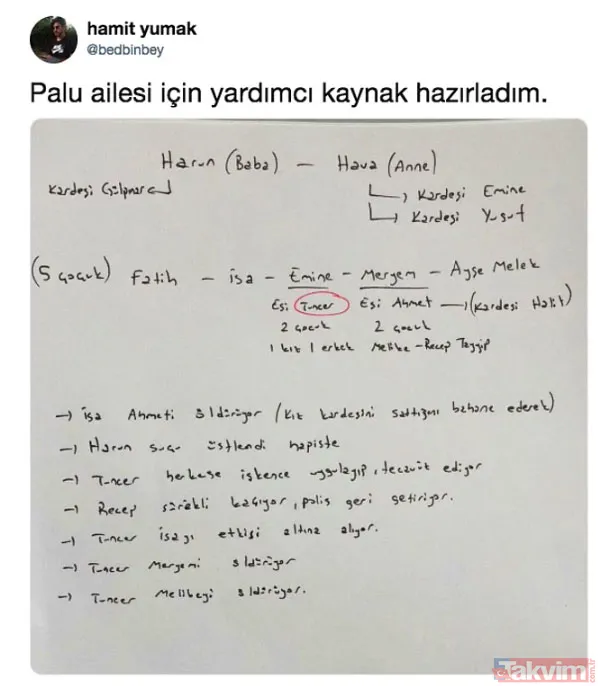 hamit yumak
@bedbinbey
Palu ailesi için yardımcı kaynak hazırladım.
Harun (Baba) — Hava (Anne)
Kardeşi Gülpınar
Kardeşi Emine
Kardeşi Yusuf
(5 çocuk) Fatih - isa - Emine - Meryem - Ayşe Melek
Eşi Tuncer Eşi Ahmet → (Kardeşi Halit)
2 çocuk 2 çocuk
1 kız 1 erkek Melike - Recep Tayyip
→ isa Ahmeti öldürüyor (kız kardeşini sattığını bahane ederek)
→ Harun suçu üstlendi hapiste
→ Tuncer herkese işkence uygulayıp, tecavüz ediyor
→ Recep sürekli kaçıyor, polis geri getiriyor.
→ Tuncer isayı etkisi altına alıyor.
→ Tuncer Meryemi öldürüyor
→ Tuncer Melikeyi öldürüyor.
Takvim.com.tr